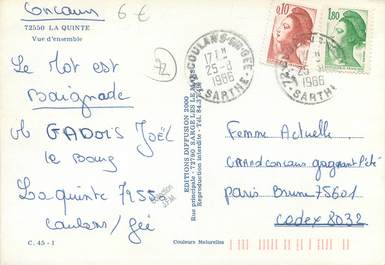 Concours 6 €
72550 LA QUINTE
Vue d'ensemble
72
Le Mot est
Baignade
GADOIS Joël
le Bourg
La quinte 72550
Coulans/Gée
C. 45 - 1
EDITIONS DIFFUSION 2000
Rue principale - 72790 SARGE LES LE MANS - Tél. 84.37
Reproduction interdite
Couleurs Naturelles
COULANS-SUR-GEE
17 H
25-3
1986
SARTHE
0,10
1,80
25-3
1986
72 SARTHE
Femme Actuelle
GRAND concours gagnant l'été
paris Brune 75601
Cedex 8032